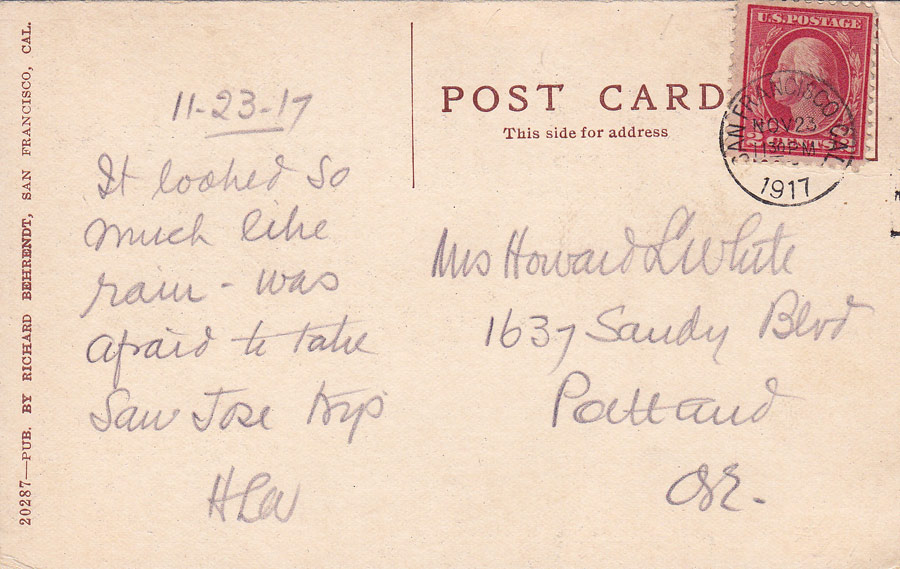 20287—PUB. BY RICHARD BEHRENDT, SAN FRANCISCO, CAL.
11-23-17
It looked so
much like
rain - was
afraid to take
San Jose trip
HLW
POST CARD
This side for address
U.S. POSTAGE
SAN FRANCISCO, CAL.
NOV 23
1130 PM
1917
Mrs Howard L White
1637 Sandy Blvd
Portland
Ore.